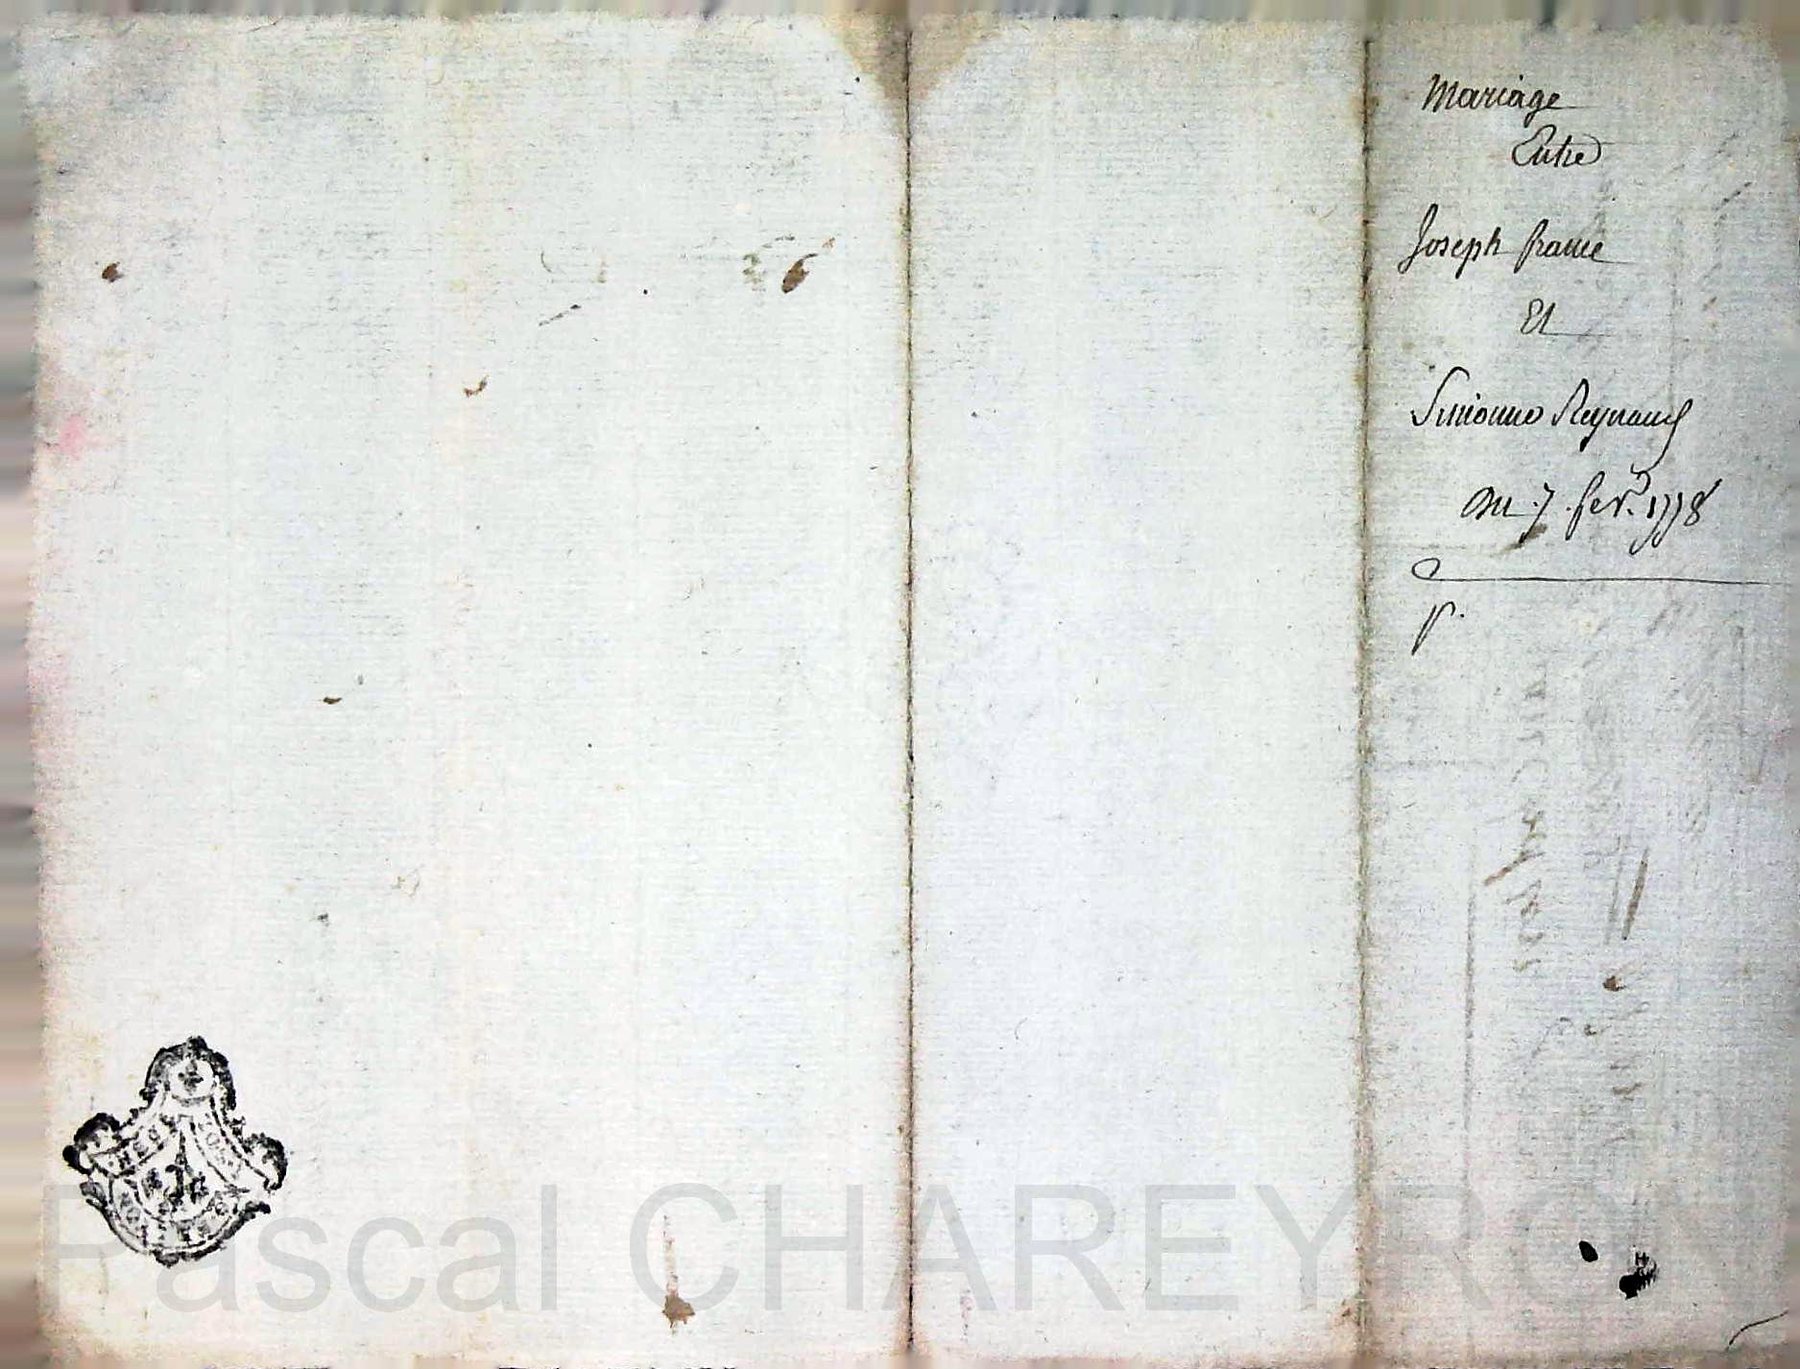 Mariage
Entre
Joseph france
Et
Simonne Reynaud
Du .7. fevr. 1778
p.
Pascal CHAREYRON